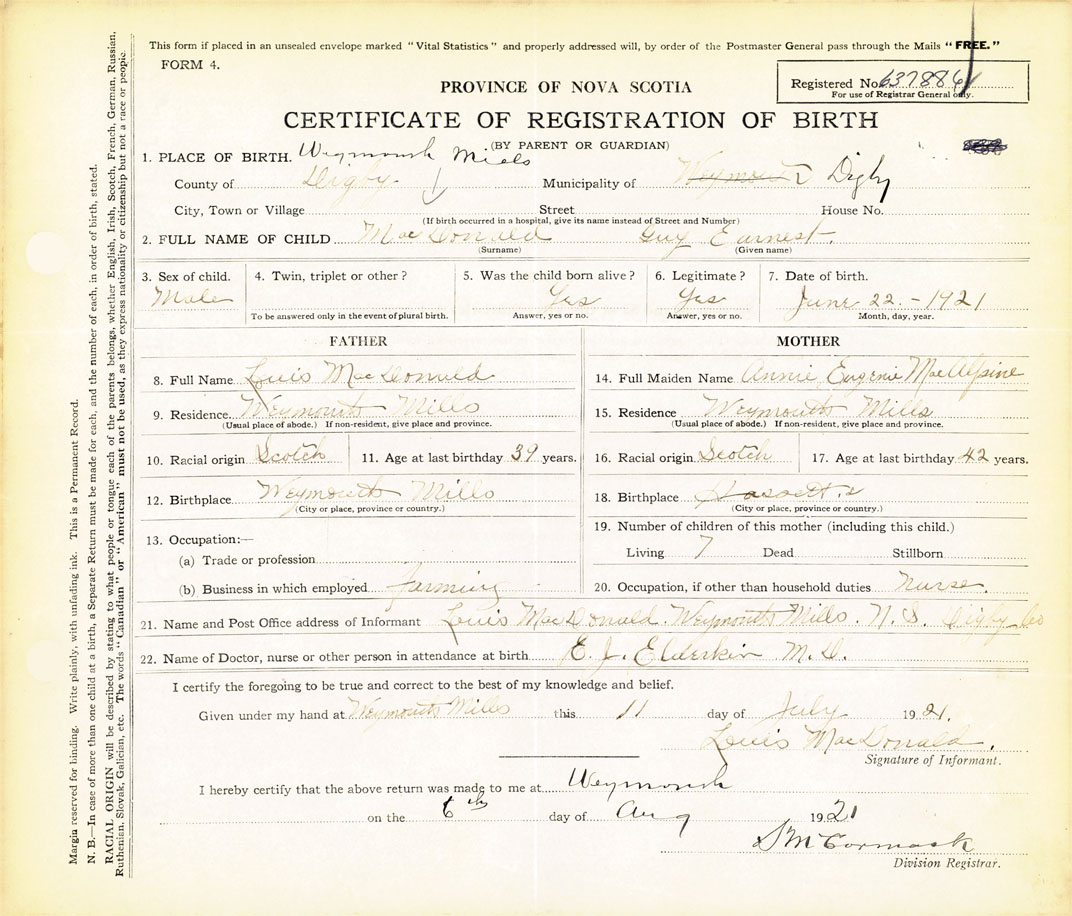 This form if placed in an unsealed envelope marked "Vital Statistics" and properly addressed will, by order of the Postmaster General pass through the Mails "FREE."
FORM 4.
Registered No. 6378864
For use of Registrar General only.
PROVINCE OF NOVA SCOTIA
CERTIFICATE OF REGISTRATION OF BIRTH
(BY PARENT OR GUARDIAN)
1. PLACE OF BIRTH. Weymouth Mills
County of Digby Municipality of Weymouth Digby
City, Town or Village Street House No.
(If birth occurred in a hospital, give its name instead of Street and Number)
2. FULL NAME OF CHILD MacDonald Guy Earnest.
(Surname) (Given name)
3. Sex of child. 4. Twin, triplet or other? 5. Was the child born alive? 6. Legitimate? 7. Date of birth.
Male Yes Yes June 22. - 1921
To be answered only in the event of plural birth. Answer, yes or no. Answer, yes or no. Month, day, year.
FATHER MOTHER
8. Full Name Louis MacDonald 14. Full Maiden Name Annie Eugenie MacAlpine
9. Residence Weymouth Mills 15. Residence Weymouth Mills
(Usual place of abode.) If non-resident, give place and province. (Usual place of abode.) If non-resident, give place and province.
10. Racial origin Scotch 11. Age at last birthday 39 years. 16. Racial origin Scotch 17. Age at last birthday 42 years.
12. Birthplace Weymouth Mills 18. Birthplace
(City or place, province or country.) (City or place, province or country.)
13. Occupation:— 19. Number of children of this mother (including this child.)
(a) Trade or profession Living 7 Dead Stillborn
(b) Business in which employed farming 20. Occupation, if other than household duties Nurse.
21. Name and Post Office address of Informant Louis MacDonald. Weymouth Mills. N. S. Digby Co
22. Name of Doctor, nurse or other person in attendance at birth E. J. Elderkin M. D.
I certify the foregoing to be true and correct to the best of my knowledge and belief.
Given under my hand at Weymouth Mills this 11 day of July 1921.
Louis MacDonald.
Signature of Informant.
I hereby certify that the above return was made to me at Weymouth
on the 6th day of Aug 1921
McCormack
Division Registrar.
Margin reserved for binding. Write plainly, with unfading ink. This is a Permanent Record.
N. B.—In case of more than one child at a birth, a Separate Return must be made for each, and the number of each, in order of birth, stated.
RACIAL ORIGIN will be described by stating to what people or tongue each of the parents belongs, whether English, Irish, Scotch, French, German, Russian,
Ruthenian, Slovak, Galician, etc. The words "Canadian" or "American" must not be used, as they express nationality or citizenship but not a race or people.